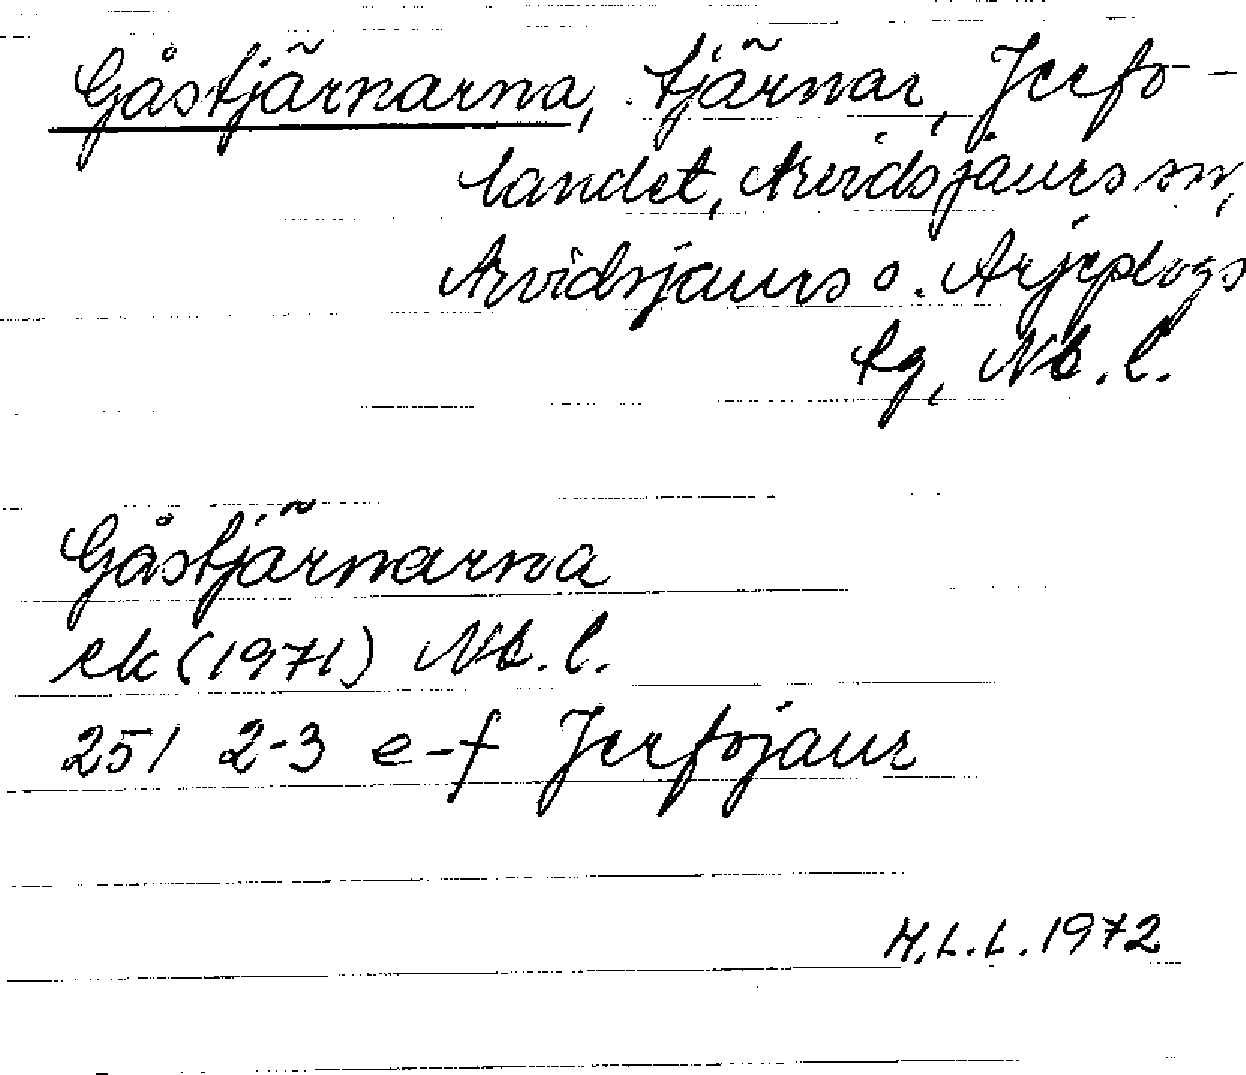 Gåstjärnarna, tjärnar, Jerfo-
landet, Arvidsjaurs sn,
Arvidsjaurs o. Arjeplogs
tg, Nb. l.
Gåstjärnarna
ek (1971) Nb. l.
251 2-3 e-f Jerfojaur
H.L.L. 1972